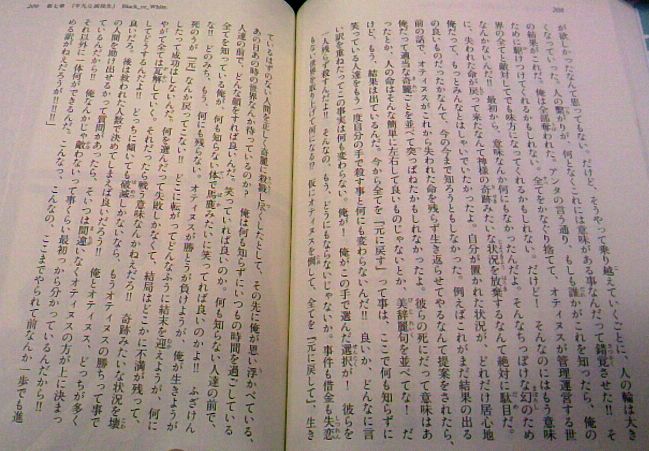 208
が欲しかったなんて思ってもない。だけど、そうやって乗り越えていくごとに、人の輪は大き
くなっていった。人の繋がりが、何となくこれには意味のある事なんだって錯覚させた!! そ
の結果がこれだ。俺は全部奪われた。アンタの言う通り、もしも誰かがこれを知ったら、俺の
ために駆けつけてくれるかもしれない。全てをかなぐり捨てて、オティヌスが管理運営する世
界の全てと敵対してでも味方になってくれるかもしれない。だけど! そんなのにはもう意味
なんかないんだ!! 最初から、意味なんか何にもなかったんだよ。そんなちっぽけな幻のため
に、失われた命が戻って来たなんて神様の奇跡みたいな状況を放棄するなんて絶対に駄目だ。
俺だって、もっとみんなとはしゃいでいたかったよ。自分が置かれた状況が、どれだけ居心地
の良いものだったかなんて、今の今まで知ろうともしなかった。例えばこれがまだ結果の出る
前の話で、オティヌスがこれから失われた命を残らず生き返らせてやるなんて提案をされたら、
俺だって適当な綺麗ごとを並べて突っぱねたかもしれなかったよ。彼らの死にだって意味はあ
ったとか、人の命はそんな簡単に左右して良いものじゃないとか、美辞麗句を並べてな! だ
けど、もう、結果は出ているんだ。今から全てを『元に戻す』って事は、ここで何も知らずに
笑っている人達をもう一度自分の手で殺す事と何にも変わらないんだ!! 良いか、どんなに言
い訳を重ねたってこの事実は何も変わらない。俺が! 俺がこの手で選んだ選択が! 彼らを
一人残らず殺すんだよ!! そんなの、もう、どうにもならないじゃんか。事件も借金も失恋
もない世界を取り上げて何になる!? 仮にオティヌスを倒して、全てを『元に戻して』、生き
209 第七章 『平凡な高校生』 Black_or_White.
ているはずのない人間を正しく綺麗に殺戮し尽くしたとして、その先に俺が思い浮かべている、
あの日あの時の世界なんか待っているのか? 俺は何も知らずにいつもの時間を過ごしている
人達の前で、どんな顔をすれば良いんだ。笑っていれば良いのか。何も知らない人達の前で、
全てを知っている俺が、何にも知らない体で馬鹿みたいに笑ってれば良いのかよ!! ふざけん
な!! どのみち、もう、何にも残らない。オティヌスが勝とうが負けようが、俺が生きようが
死のうが『元』なんか戻ってこない!! どこに転がってどんなふうに結末を迎えようが、何に
したって成功はしないんだ。何を選んだって失敗しかなくて、結局はどこかに不満が残って、
やがて全ては瓦解していく。それだったら戦う意味なんかねえだろ!! 奇跡みたいな状況を壊
してどうするんだよ!! どっちに傾いても破滅しかないなら、もうオティヌスの勝ちって事で
良いだろ。後は救われた人数で決めてしまえば良いだろう!! 俺とオティヌス、どっちが多く
の人間を助け出せるかって質問があったら、そいつは間違いなくオティヌスの方が上に決まっ
ているんだから!! 俺なんかじゃ敵わないって事くらい最初っから分かっているんだから!!
それ以外に一体何ができるんだ。こんなっ、こんなの、ここまでやられて前なんか一歩でも進
める訳がねえだろうが!!!!!!